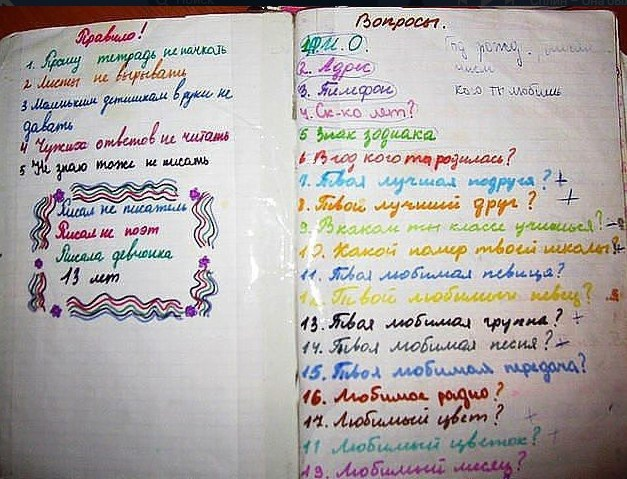 Правило!
1. Прошу тетрадь не пачкать
2 Листы не вырывать
3 Маленьким детишкам в руки не
давать
4 Чужих ответов не читать
5 Не знаю тоже не писать
Писал не писатель
Писал не поэт
Писала девчонка
13 лет
Вопросы.
1 Ф.И.О.
2. Адрес
3. Телефон
4. Ск-ко лет?
5 Знак зодиака
6. В год кого ты родилась?
7. Твоя лучшая подруга? +
8. Твой лучший друг? +
9. В каком ты классе учишься?
10. Какой номер твоей школы?
11. Твоя любимая певица?
12. Твой любимый певец?
13. Твоя любимая группа? +
14. Твоя любимая песня? +
15. Твоя любимая передача?
16. Любимое радио?
17. Любимый цвет? +
11 Любимый цветок? +
19. Любимый месяц?
Год рожд.
кого ты любишь